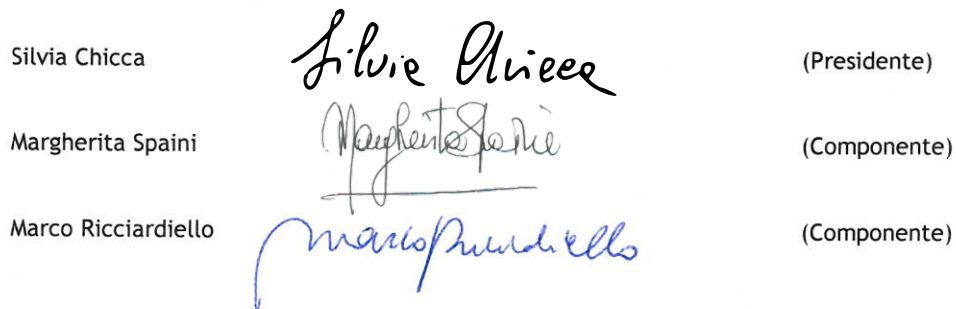 Silvia Chicca Silvia Chicca (Presidente)
Margherita Spaini Margherita Spaini (Componente)
Marco Ricciardiello Marco Ricciardiello (Componente)